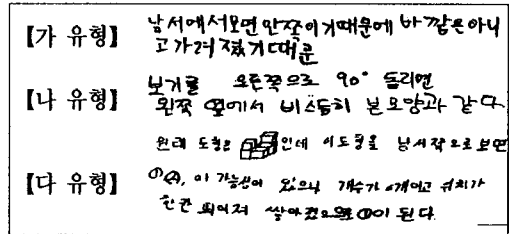 【가 유형】 남서에서보면 안쪽이기때문에 바깥은아니
고가려졌기때문
【나 유형】 보기를 오른쪽으로 90° 돌리면
왼쪽 옆에서 비스듬히 본모양과 같다.
원래 도형은 인데 이도형을 남서쪽으로보면
【다 유형】 이 가능성이 있으나 개수가 4개이고 위치가
한칸 띄어져 쌓아졌으므로 이 된다.